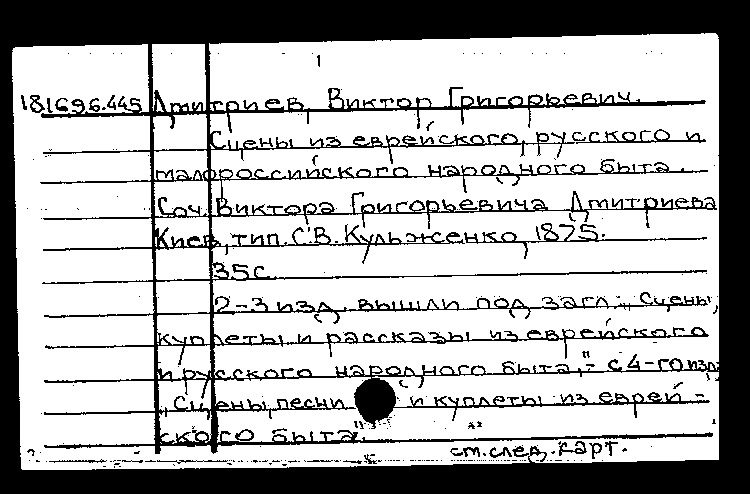 181696.445 Дмитриев, Виктор Григорьевич.
Сцены из еврейского, русского и
малороссийского народного быта.
Соч. Виктора Григорьевича Дмитриева
Киев, тип. С.В. Кульженко, 1875.
35с.
2-3 изд. вышли под загл: „Сцены,
куплеты и рассказы из еврейского
и русского народного быта," - с 4-го изд:
„Сцены, песни и куплеты из еврей =
ского быта".
см. след. карт.